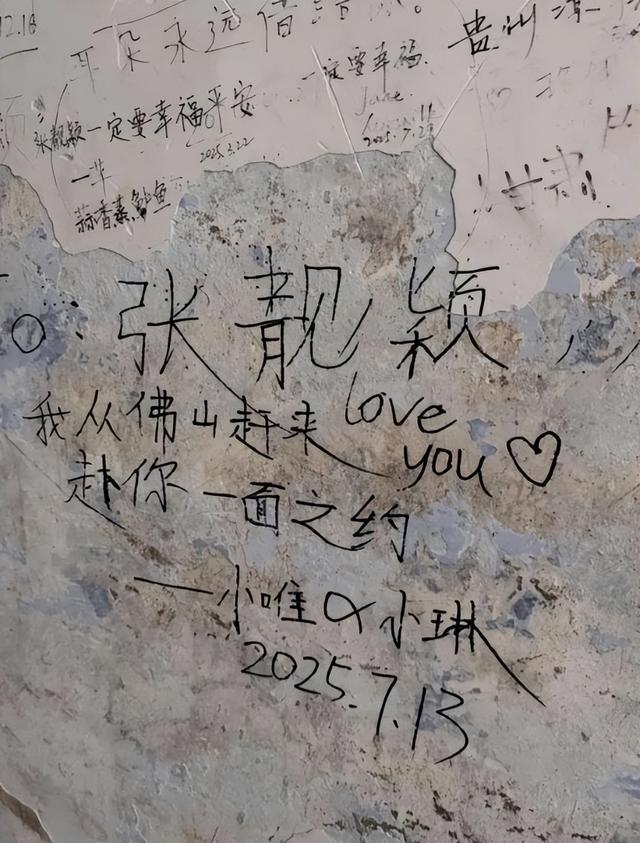 12.18
耳朵永远借
一定要幸福.
June.
2025.7.
贵州
张靓颖一定要幸福平安
2025.3.22
一芊
蒜香蒸鲈鱼
甘肃
o. 张靓颖,
我从佛山赶来 love
赴你一面之约 you ♡
——小唯 & 小琳
2025.7.13